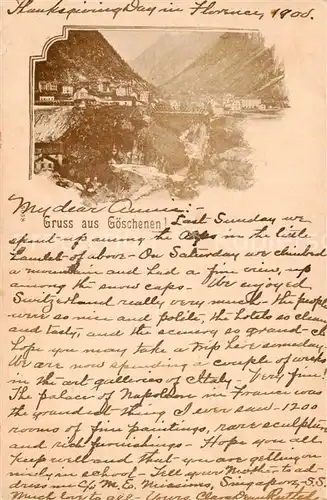 Thanksgiving Day in Florence, 1908.
Gruss aus Göschenen!
My dear Anna:- Last Sunday we
spent up among the Alps in the little
hamlet of above- On Saturday we climbed
a mountain and had a fine view, up
among the snow caps- We enjoyed
Switzerland really very much- the people
were so nice and polite, the hotels so clean
and tasty, and the scenery so grand- I
hope you may take a trip here someday.
We are now spending a couple of weeks
in the art galleries of Italy- Very fine!
The palace of Napoleon in France was
the grandest thing I ever saw- 1200
rooms of fine paintings, rare sculpture
and rich furnishings- Hope you all
keep well and that you are getting on
nicely in school- Tell your Mother to ad-
dress me c/o M.E. Missions, Singapore, S.S.
Much love to all- Yours,